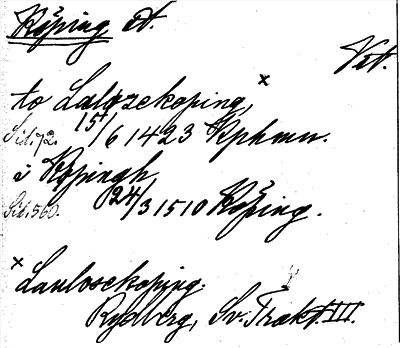 Köping, st.
Vst.
to Laløzekoping, x
Sid. 72. 15/6 1423 Kphmn.
i Köpingh
Sid. 560. 24/3 1510 Köping.
x Laulosekoping.
Rydberg, Sv. Trakt. III.